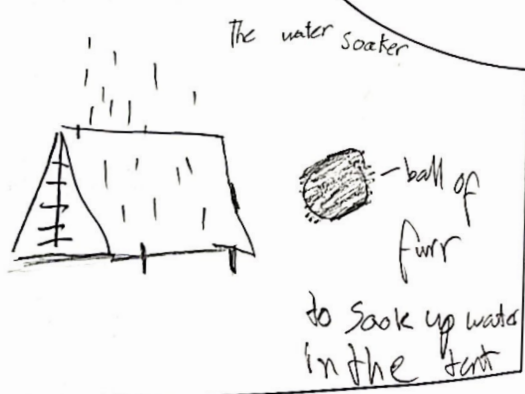 The water soaker
- ball of
furr
to Soak up water
in the tent